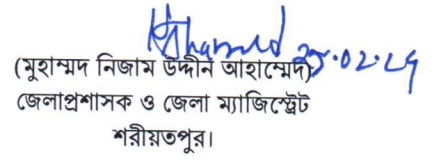 (মুহাম্মদ নিজাম উদ্দীন আহাম্মেদ)
জেলাপ্রশাসক ও জেলা ম্যাজিস্ট্রেট
শরীয়তপুর।